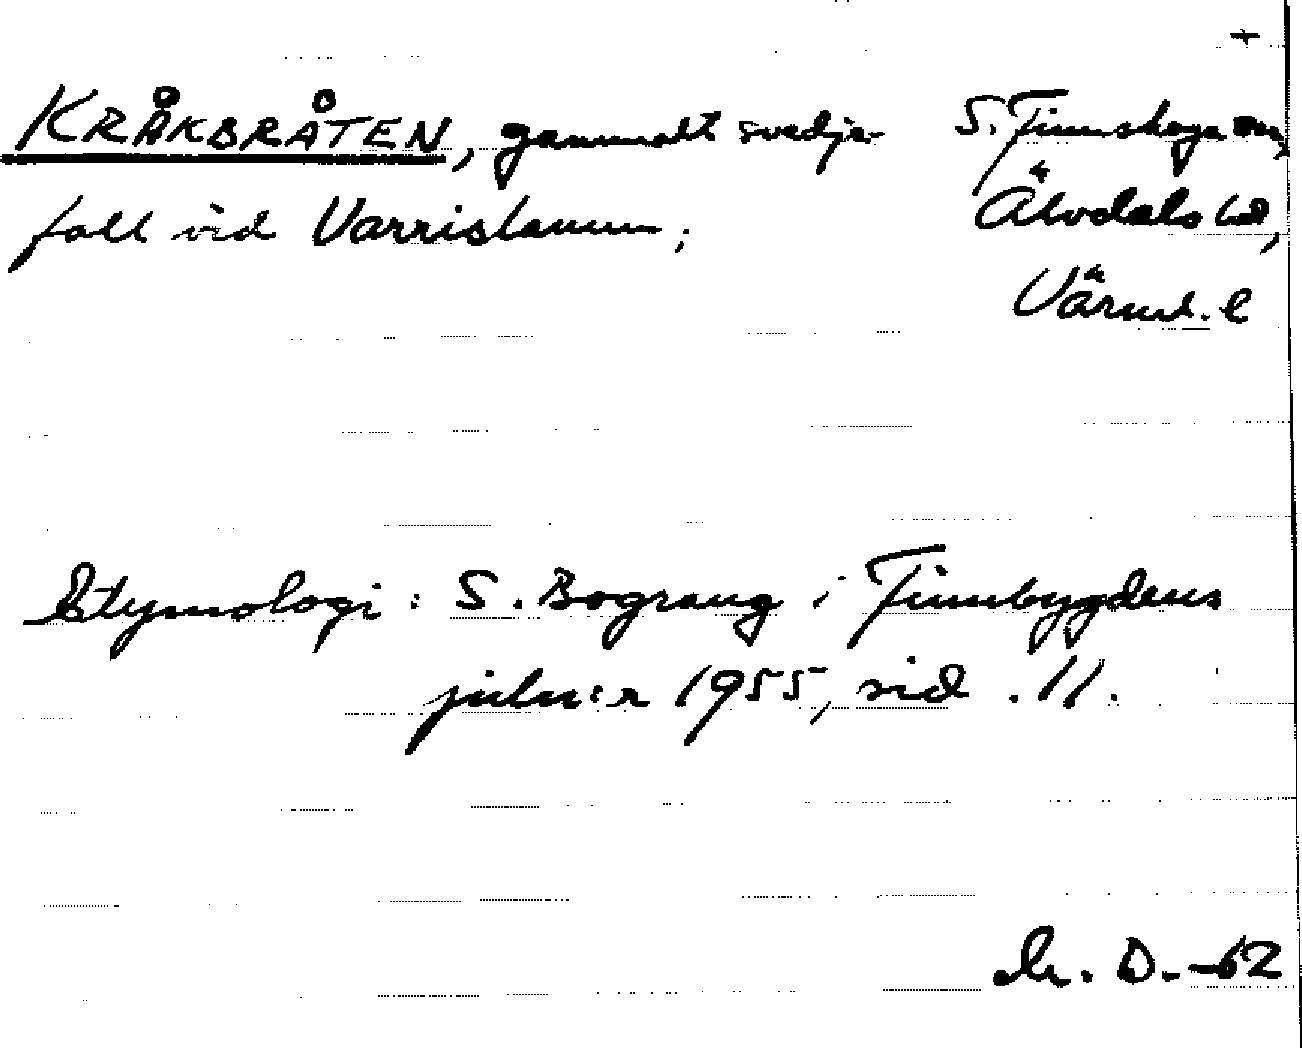 +
KRÅKBRÅTEN, gammalt svedje- S. Finnskoga sn,
fall vid Varrislamm; Älvdals hd,
Värml. l
Etymologi: S. Bograng i Finnbygdens
julnr 1955, sid. 11.
D. -62